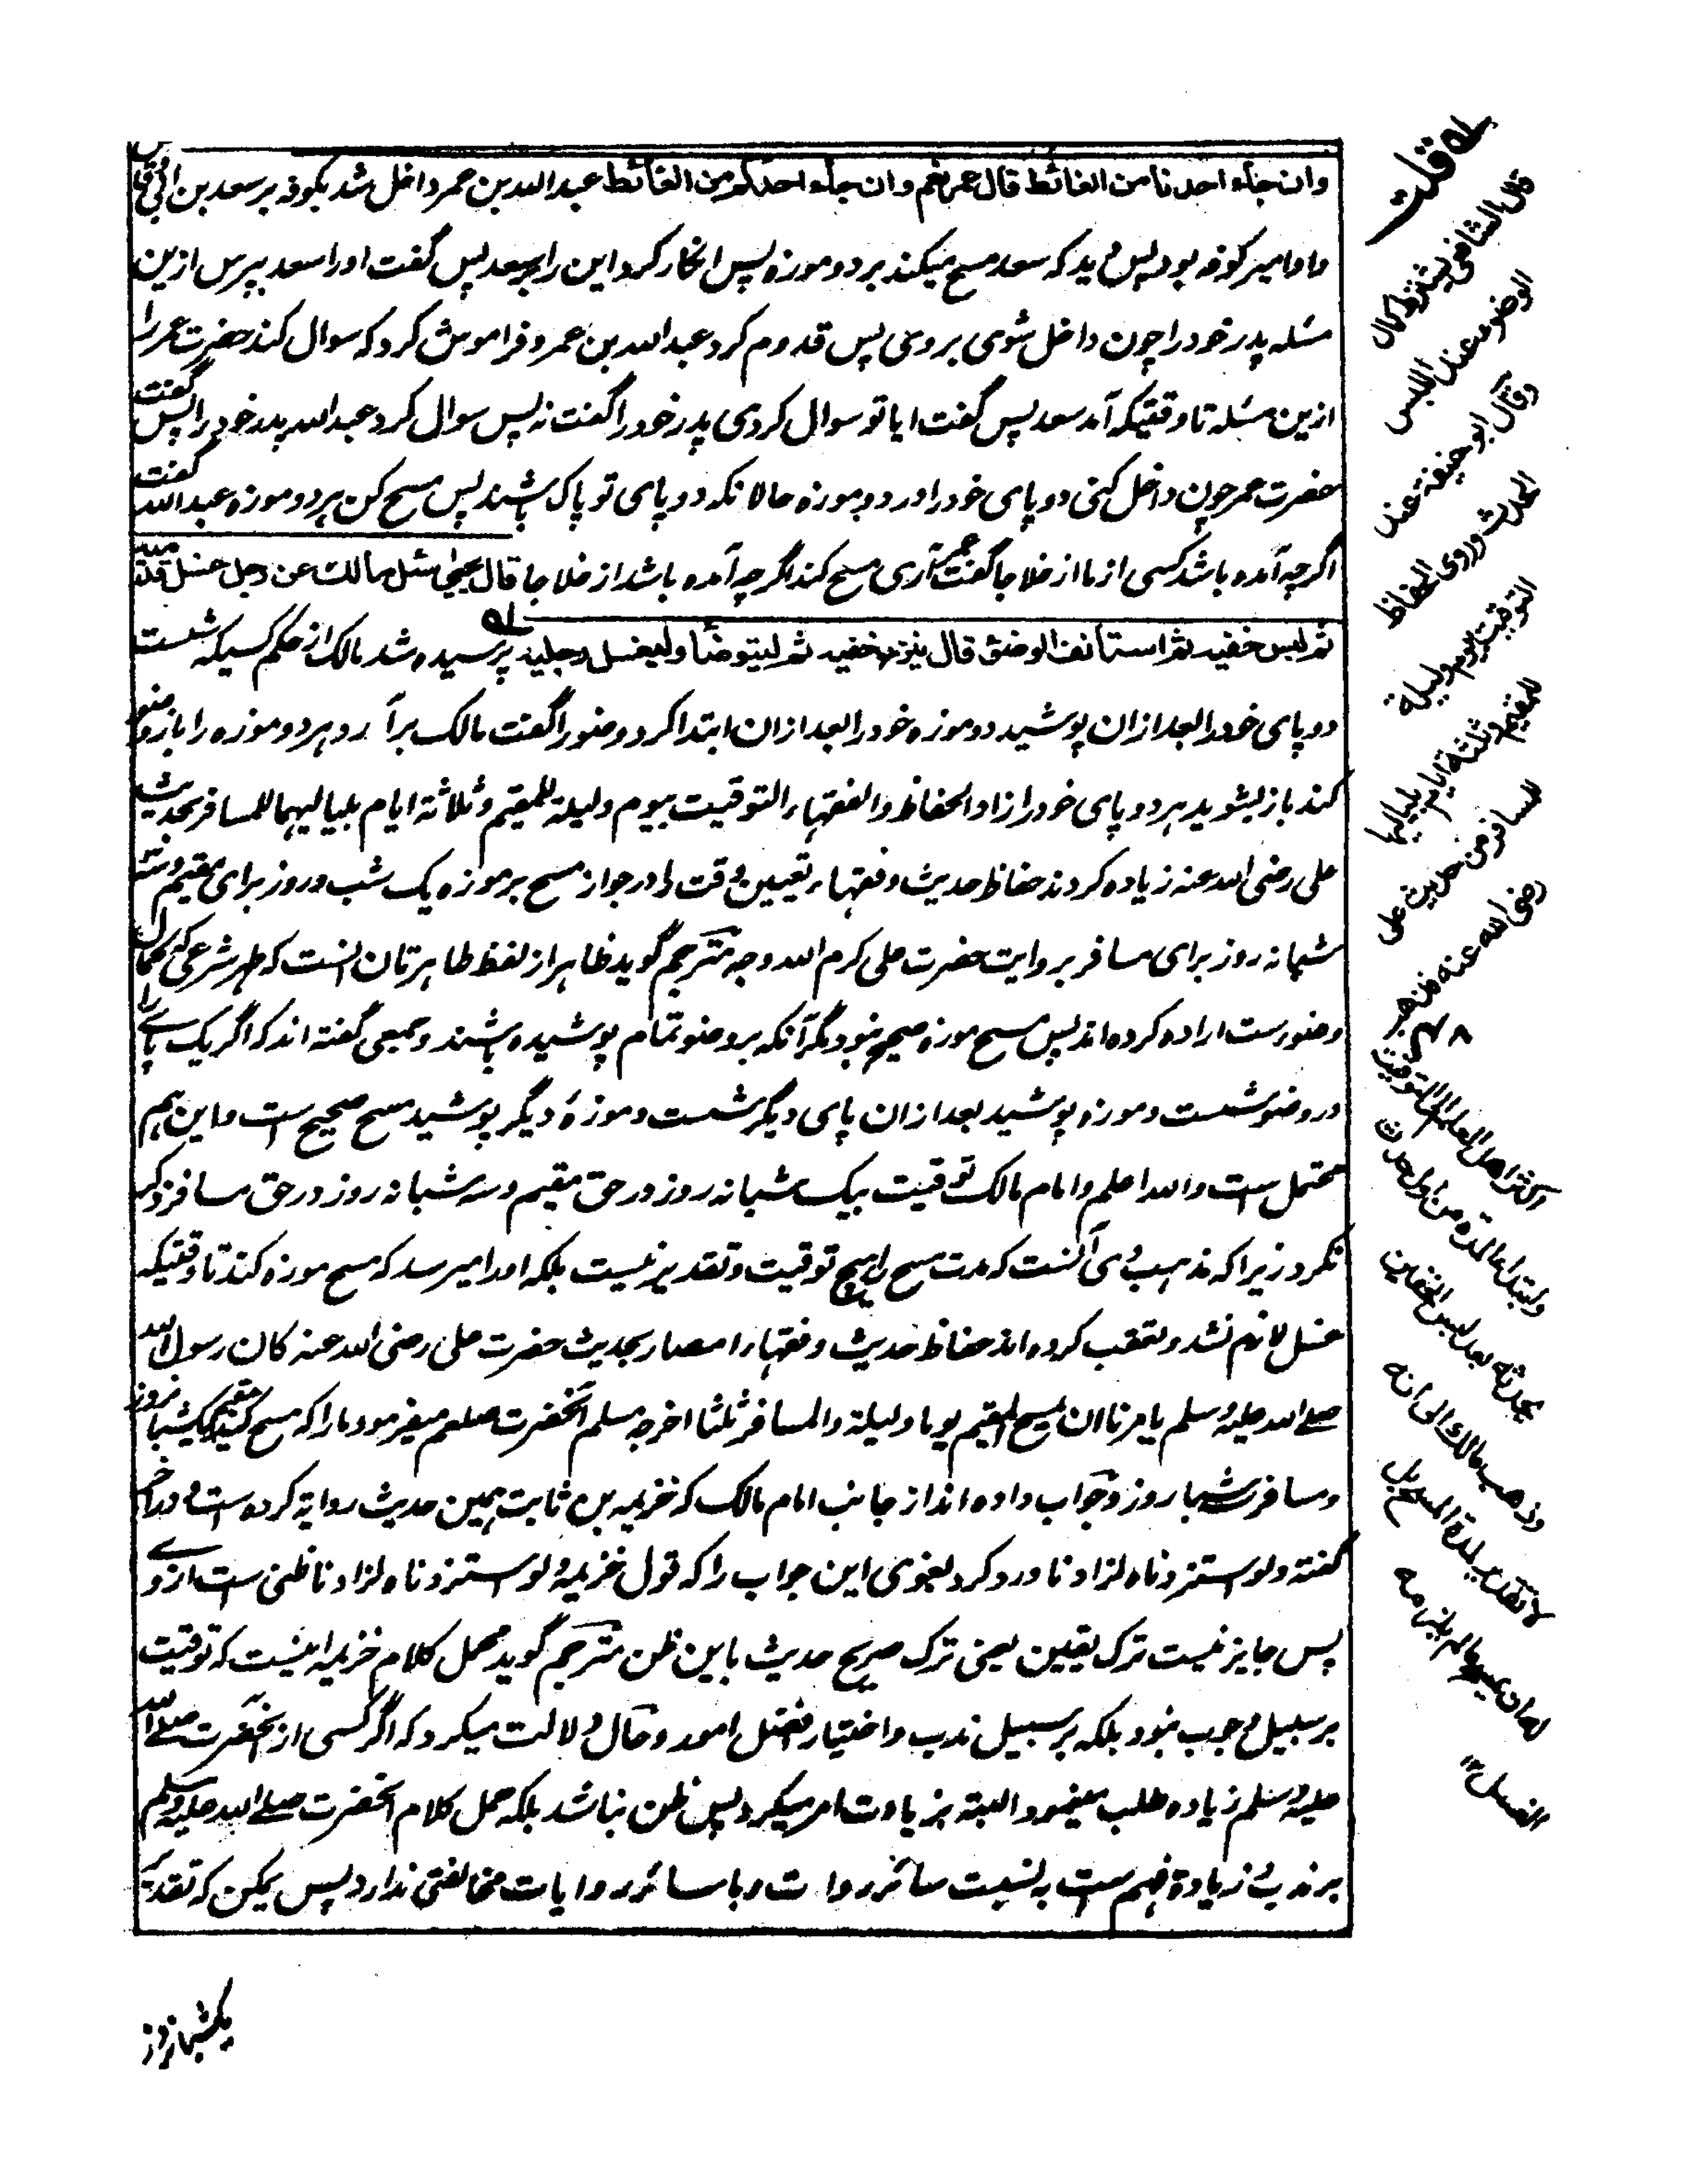 وان جاء احدنا من الغائط قال عمر نعم وان جاء احدكم من الغائط عبد الله بن عمر داخل شد بكوفه بر سعد بن ابی وقاص
و او امیر کوفه بود پس دید که سعد مسح میکند بر دو موزه پس انکار کرد این را بر سعد پس گفت او را سعد بپرس ازین
مسئله پدر خود را چون داخل شوی بر وی پس قدوم کرد عبد الله بن عمر و فراموش کرد که سوال کند حضرت عمر را
ازین مسئله تا وقتیکه آمد سعد پس گفت ایا تو سوال کردی پدر خود را گفت نه پس سوال کرد عبد الله پدر خود را پس گفت
حضرت عمر چون داخل کنی دو پای خود را در دو موزه حالانکه دو پای تو پاک باشند پس مسح کن بر دو موزه عبد الله گفت
اگرچه آمده باشد کسی از ما از خلا جا گفت عمر آری مسح کند اگرچه آمده باشد از خلا جا قال یحیی سئل مالك عن رجل غسل قدمیه
ثم لبس خفیه ثم استأنف الوضوء قال ینزع خفیه ثم لیتوضأ ولیغسل رجلیه پرسیده شد مالک از حکم کسیکه شست
دو پای خود را بعد ازان پوشید دو موزه خود را بعد ازان ابتدا کرد وضو را گفت مالک بر آرد هر دو موزه را باز وضو
کند باز بشوید هر دو پای خود را زاد الحفاظ والفقهاء التوقیت بیوم ولیلة للمقیم وثلاثة ایام بلیالیهما للمسافر بحدیث
علی رضی الله عنه زیاده کردند حفاظ حدیث و فقهاء تعیین وقت را در جواز مسح بر موزه یک شب و روز برای مقیم و سه
شبانه روز برای مسافر بروایت حضرت علی کرم الله وجه مترجم گوید ظاهر از لفظ طاهرتان انست که طهر شرعی که کمال
وضورست اراده کرده اند پس مسح موزه صحیح نبود مگر آنکه بر وضو تمام پوشیده باشند و جمعی گفته اند که اگر یک پای را
در وضو شست و موزه پوشید بعد ازان پای دیگر شست و موزهٔ دیگر پوشید مسح صحیح است و این هم
محتمل ست والله اعلم و امام مالک توقیت بیک شبانه روز در حق مقیم و سه شبانه روز در حق مسافر ذکر
نکرد زیرا که مذهب وی آنست که مدت مسح را هیچ توقیت و تقدیر نیست بلکه او را میرسد که مسح موزه کند تا وقتیکه
غسل لازم نشد و تعقب کرده اند حفاظ حدیث و فقهاء امصار بحدیث حضرت علی رضی الله عنه کان رسول الله
صلی الله علیه وسلم یامرنا ان یمسح المقیم یوما ولیلة والمسافر ثلثا اخرجه مسلم آنحضرت صلعم میفرمود ما را که مسح کند مقیم یکشبانروز
و مسافر سه شبا روز و جواب داده اند از جانب امام مالک که خزیمه بن ثابت همین حدیث روایه کرده ست و در آخر
گفته ولو استزدناه لزادنا و رد کرد بغوی این جواب را که قول خزیمه ولو استزدناه لزادنا ظنی ست از وے
پس جایز نیست ترک یقین یعنی ترک صریح حدیث باین ظن مترجم گوید محمل کلام خزیمه اینست که توقیت
بر سبیل وجوب نبود بلکه بر سبیل ندب و اختیار افضل امور و حال دلالت میکرد که اگر کسی از آنحضرت صلی الله
علیه وسلم زیاده طلب مینمود البته بزیادت امر میکرد پس ظن نباشد بلکه حمل کلام آنحضرت صلی الله علیه وسلم
بر ندب زیادة فهم ست به نسبت سائر روات و با سائر روایات مخالفتی ندارد پس یمکن که تقدیر
یکشبانروز
له قلت
قال الشافعی یشترط کمال
الوضوء عند اللبس
وقال ابو حنیفة عند
الحدث وروی الحفاظ
التوقیت بیوم ولیلة
للمقیم وثلثة ایام بلیالیها
للمسافر من حدیث علی
رضی الله عنه
اکثر اهل العلم الی التوقیت
وابتداء المدة من اول حدث
یحدثه بعد لبس الخفین
وذهب مالک الی انه
لا تقدیر لمدة المسح بل
له ان یمسح ما لم یلزمه
الغسل ۱۲